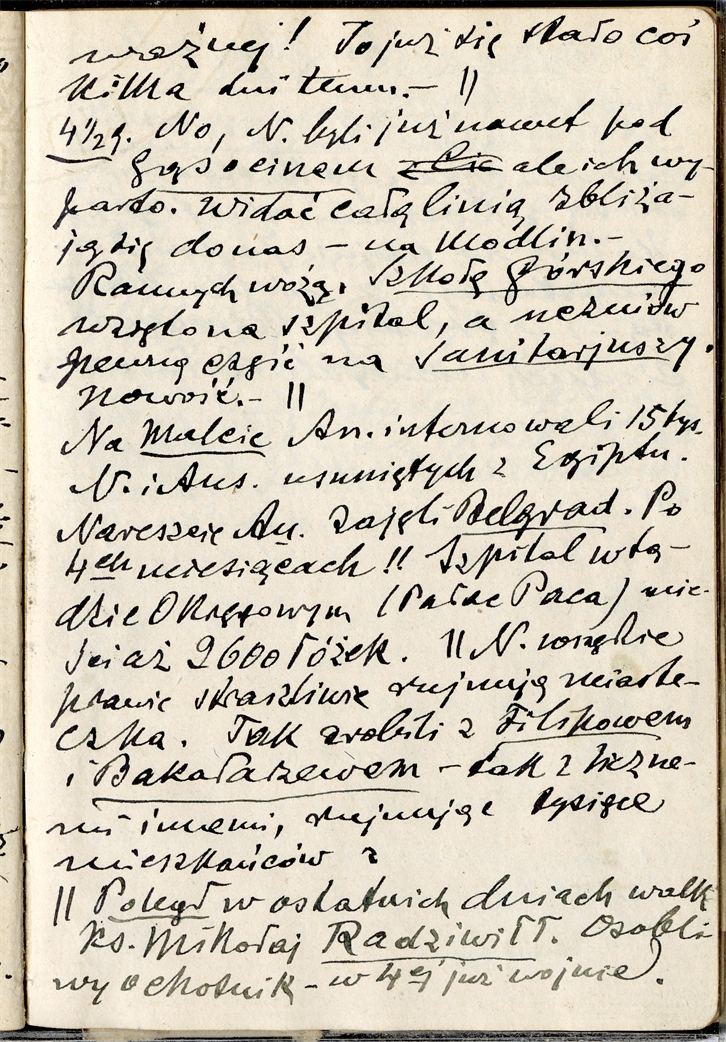 ważnej! To już się stało coś
kilka dni temu.– ||
4½g. No, N. byli już nawet pod
Gąsocinem ale ich wy-
parto. Widać całą linią zbliża-
ją się do nas – na Modlin.–
Rannych wożą. Szkołę Górskiego
wzięto na szpital, a uczniów
pewną część na sanitarjuszy.
Nowość.– ||
Na Malcie An. internowali 15 tys.
N. i Aus. usuniętych z Egiptu.
Nareszcie Au. zajęli Belgrad. Po
4ech miesiącach!! Szpital w Są-
dzie Okręgowym (Pałac Paca) mie-
ści aż 2600 łóżek. || N. wszędzie
prawie straszliwie rujnują miaste-
czka. Tak zrobili z Filipowem
i Bakałarzewem – tak z liczne-
mi innemi, rujnując tysiące
mieszkańców
|| Poległ w ostatnich dniach walk
ks. Mikołaj Radziwiłł. Osobli-
wy ochotnik – w 4ej już wojnie.